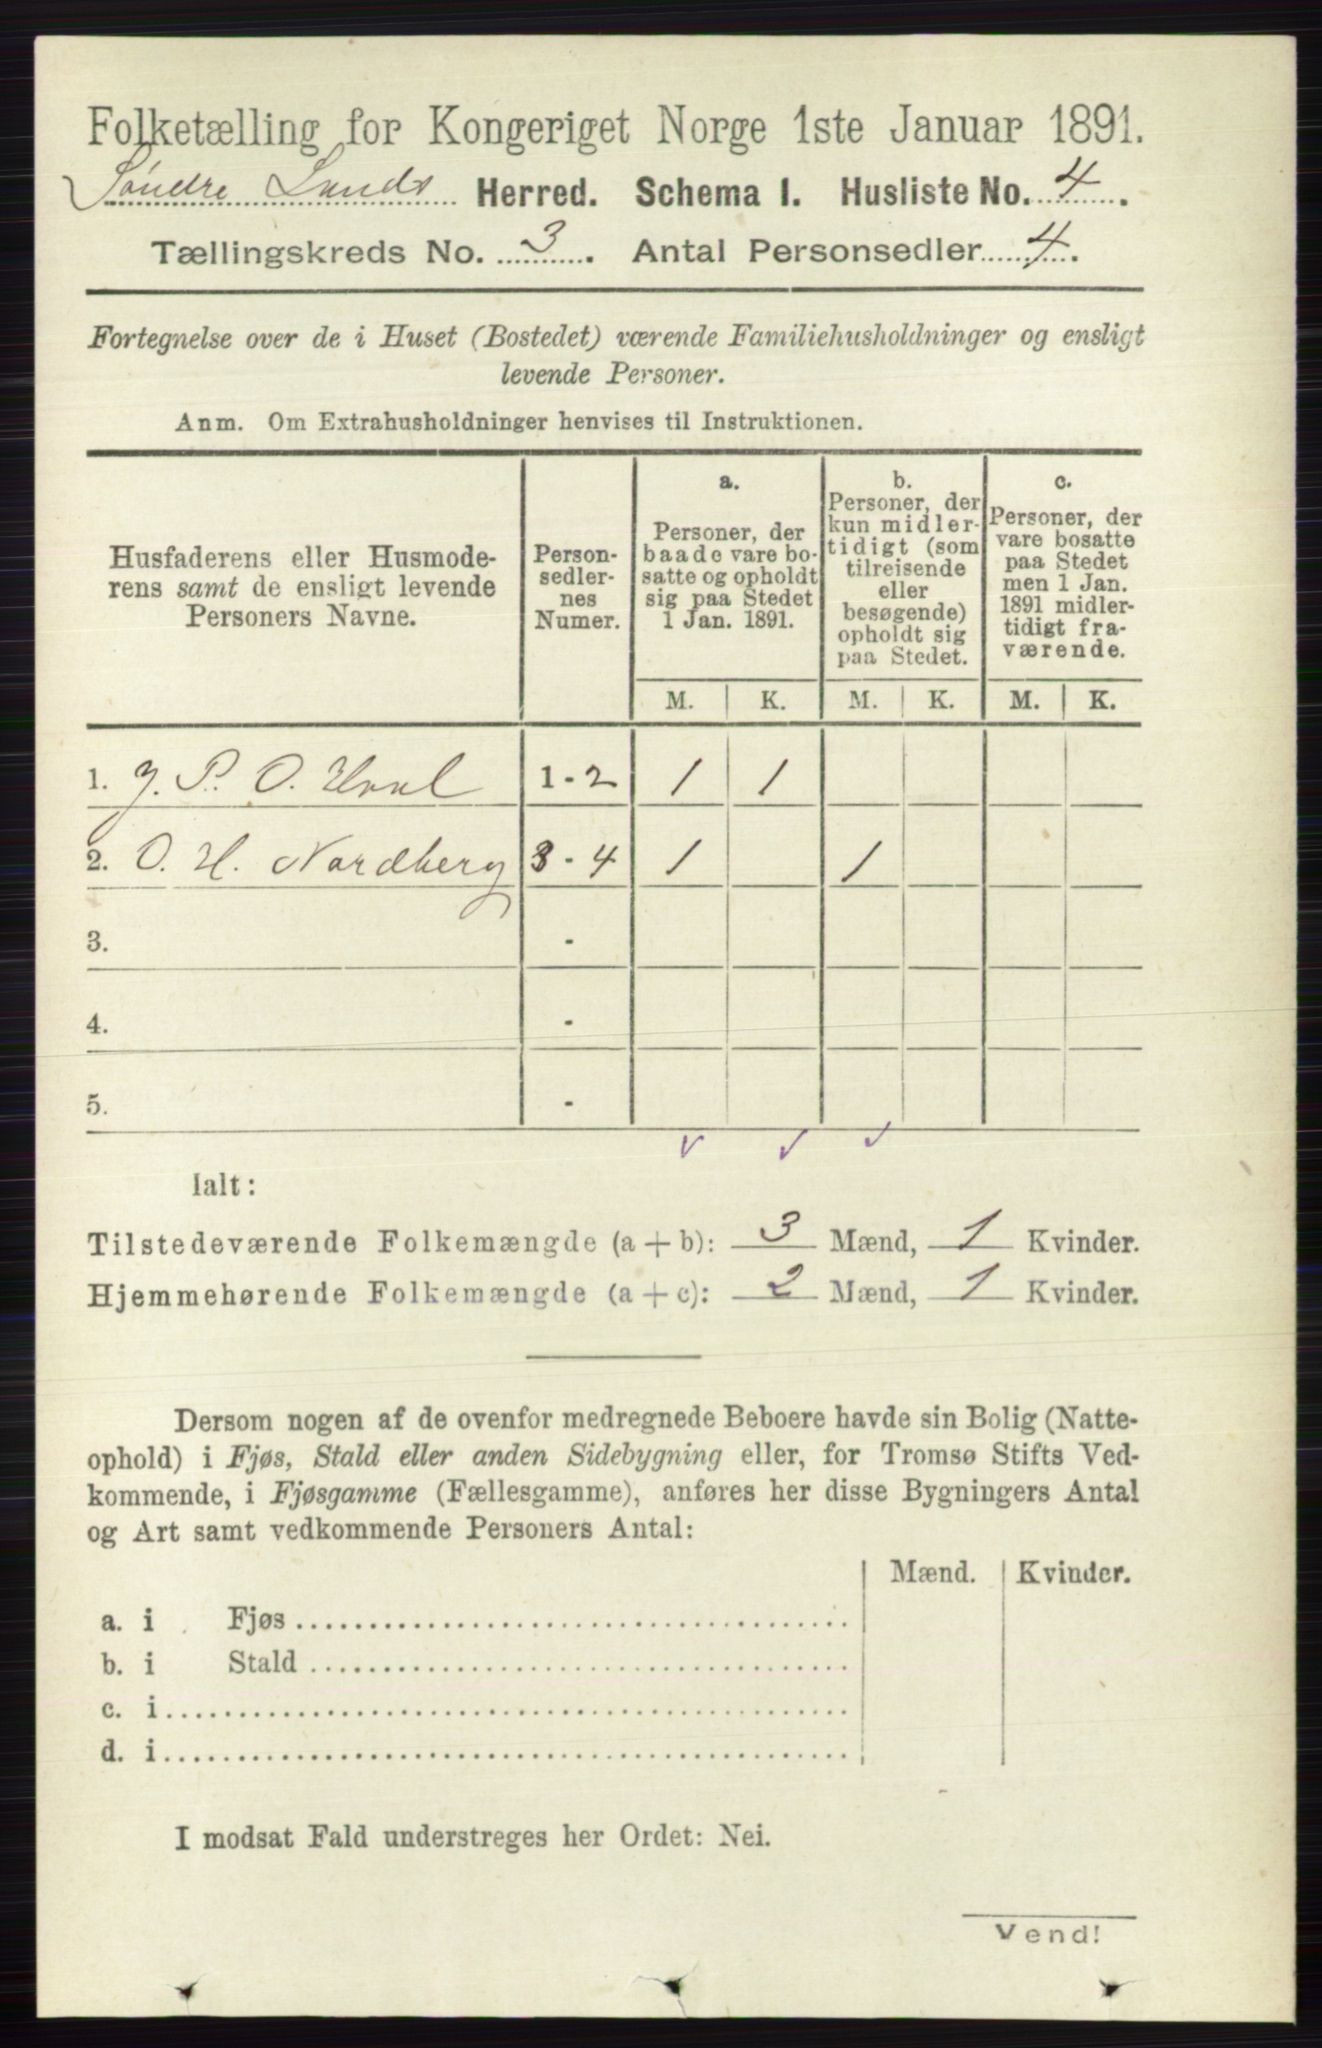 Folketælling for Kongeriget Norge 1ste Januar 1891.
Søndre Lands Herred. Schema I. Husliste No. 4.
Tællingskreds No. 3. Antal Personsedler 4.
Fortegnelse over de i Huset (Bostedet) værende Familiehusholdninger og ensligt
levende Personer.
Anm. Om Extrahusholdninger henvises til Instruktionen.
Husfaderens eller Husmode-
rens samt de ensligt levende
Personers Navne.
Person-
sedler-
nes
Numer.
a.
Personer, der
baade vare bo-
satte og opholdt
sig paa Stedet
1 Jan. 1891.
b.
Personer, der
kun midler-
tidigt (som
tilreisende
eller
besøgende)
opholdt sig
paa Stedet.
c.
Personer, der
vare bosatte
paa Stedet
men 1 Jan.
1891 midler-
tidigt fra-
værende.
M. K. M. K. M. K.
1. J. P. O. 1-2 1 1
2. O. H. Nordberg 3-4 1 1
3. -
4. -
5. -
Ialt:
Tilstedeværende Folkemængde (a + b): 3 Mænd, 1 Kvinder.
Hjemmehørende Folkemængde (a + c): 2 Mænd, 1 Kvinder.
Dersom nogen af de ovenfor medregnede Beboere havde sin Bolig (Natte-
ophold) i Fjøs, Stald eller anden Sidebygning eller, for Tromsø Stifts Ved-
kommende, i Fjøsgamme (Fællesgamme), anføres her disse Bygningers Antal
og Art samt vedkommende Personers Antal:
Mænd. Kvinder.
a. i Fjøs
b. i Stald
c. i
d. i
I modsat Fald understreges her Ordet: Nei.
Vend!